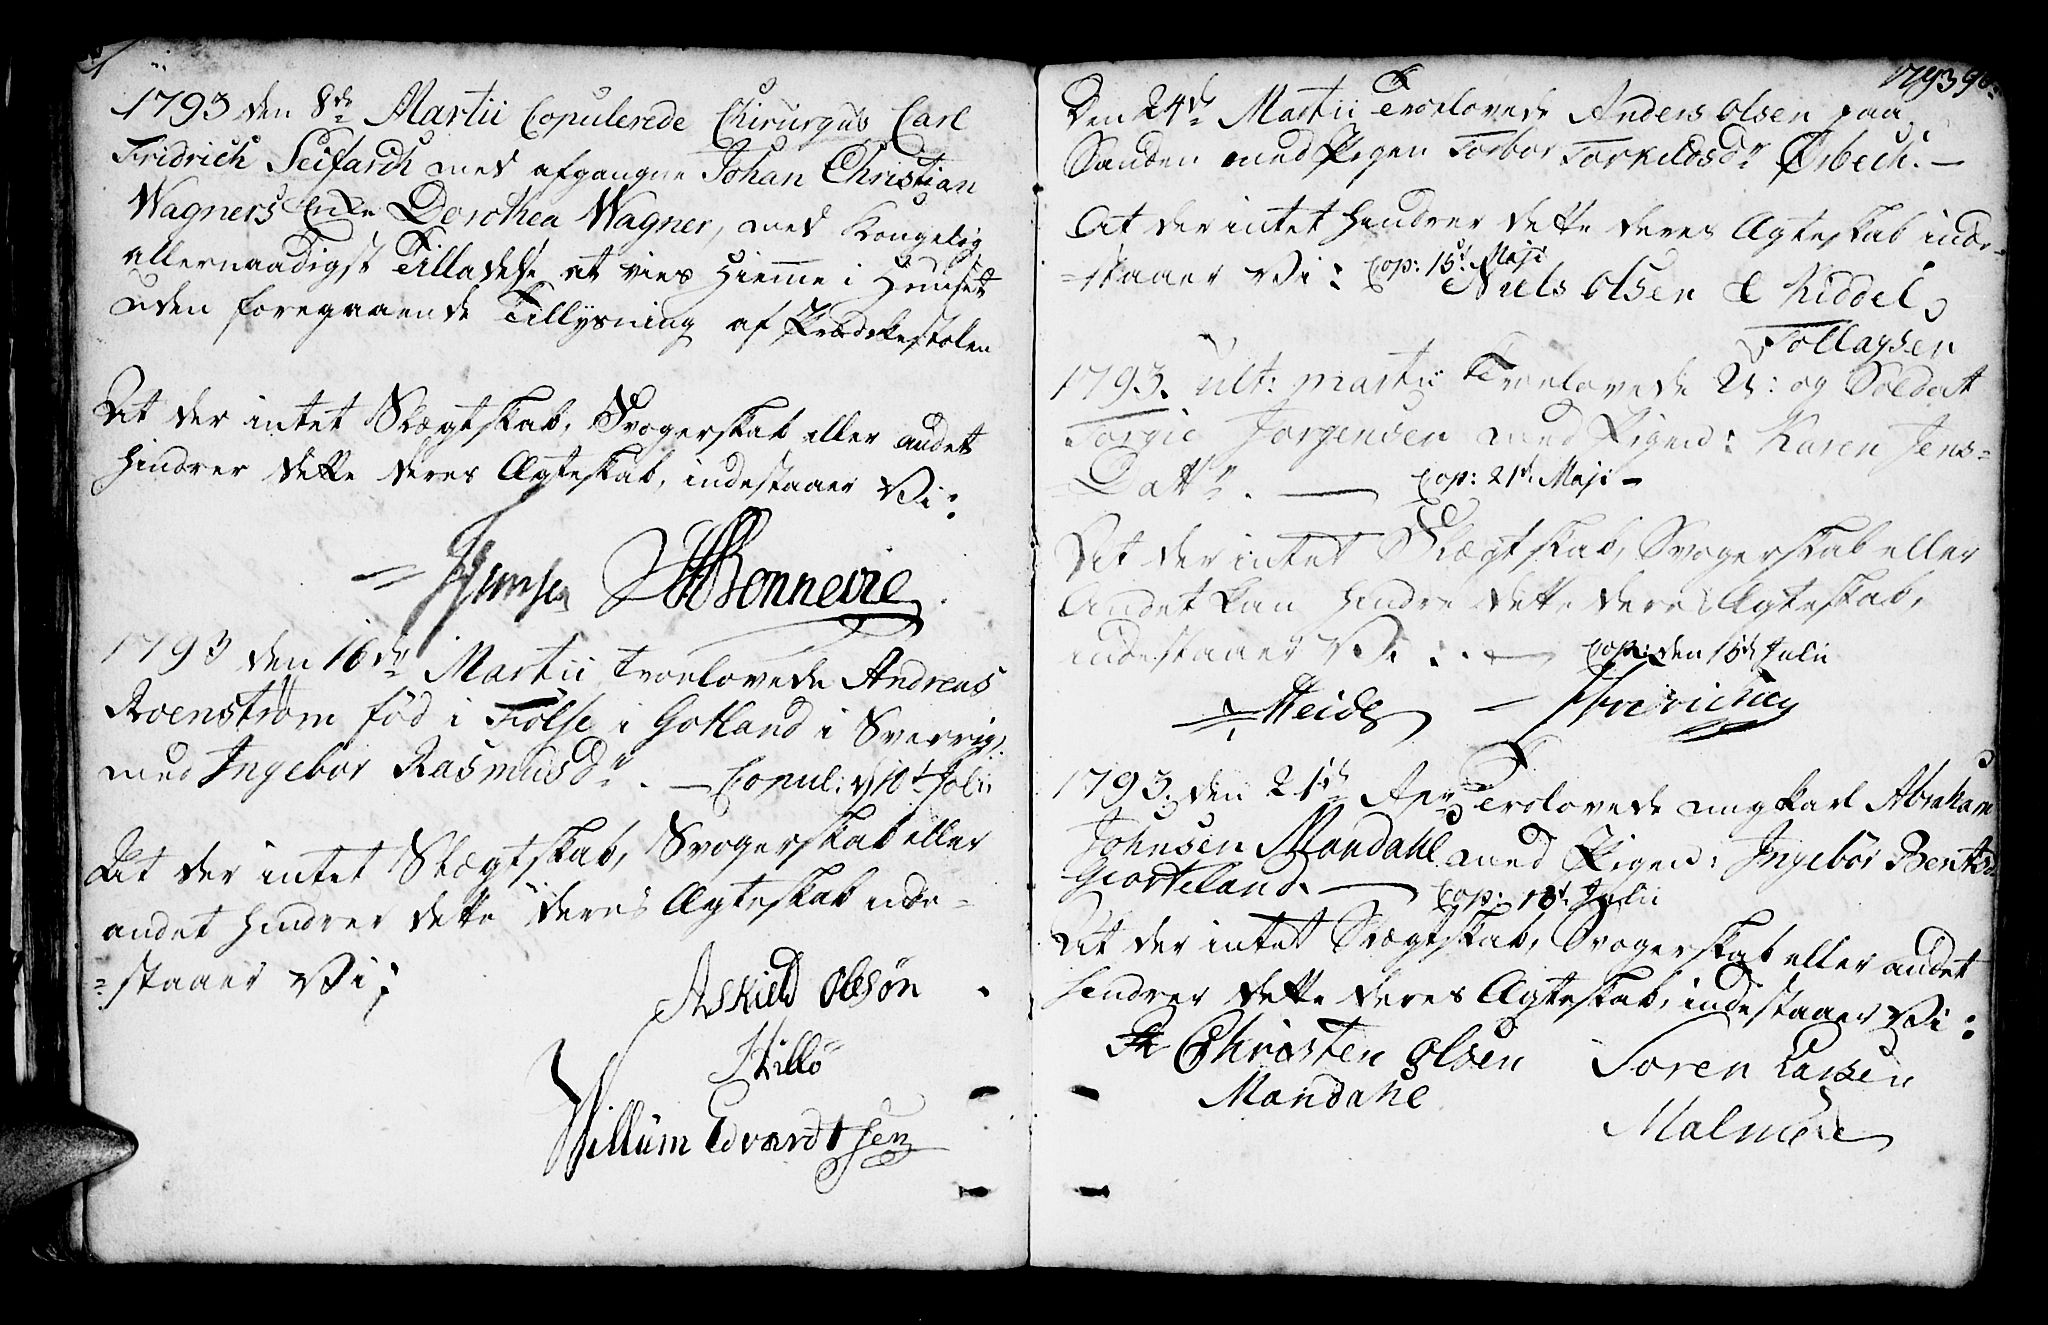 1793 den 8de Martii Copulerede Chirurgus Carl
Fridrich Seifardh med afgangne Johan Christian
Wagners Enke Dorothea Wagner, med Kongelig
allernaadigst Tilladelse at vies hieme i Huuset
uden foregaaende Tillysning af Prædikestolen
At der intet Slægtskab, Svogerskab eller andet
hindrer dette deres Ægteskab, indestaaer Vi:
HBonnevie
1793 den 16de Martii Troelovede Andreas
Roenstrøm fød i Fiølse i Gotland i Sverrig
med Ingebor Rasmusdr. — Copul: d 10t Julii
At der intet Slægtskab, Svogerskab eller
andet hindrer dette deres Ægteskab inde-
=staaer Vi;
Askield Olesøn
Skillö
Willum Edvardtsen
1793 90.
Den 24de Martii Troelovede Anders Olsen paa
Sanden med Pigen Torbor Torkildsdr Ørbech. —
At der intet hindrer dette deres Ægteskab inde-
=staaer Vi: Cop: 15d Maji
Niels Olsen & Kiddel
Tollaysen
1793. ult: martii Troelovede U: og Soldat
Torgie Jørgensen med Pigen: Karen Jens=
=Dattr. — Cop: 21d Maji —
At der intet Slægtskab, Svogerskab eller
Andet kan hindre dette deres Ægteskab,
indestaaer Vi: — Cop: den 15d Julii
Heide —
1793. den 21de Apr Trolovede ungkarl Abraham
Johnsen Mandahl med Pigen: Ingebor Bentsd
Giorteland. — Cop: 18d Julii
At der intet Slægtskab, Svogerskab eller andet
hindrer dette deres Ægteskab, indestaaer Vi:
Christen Olsen Soren Larsen
Mandahl